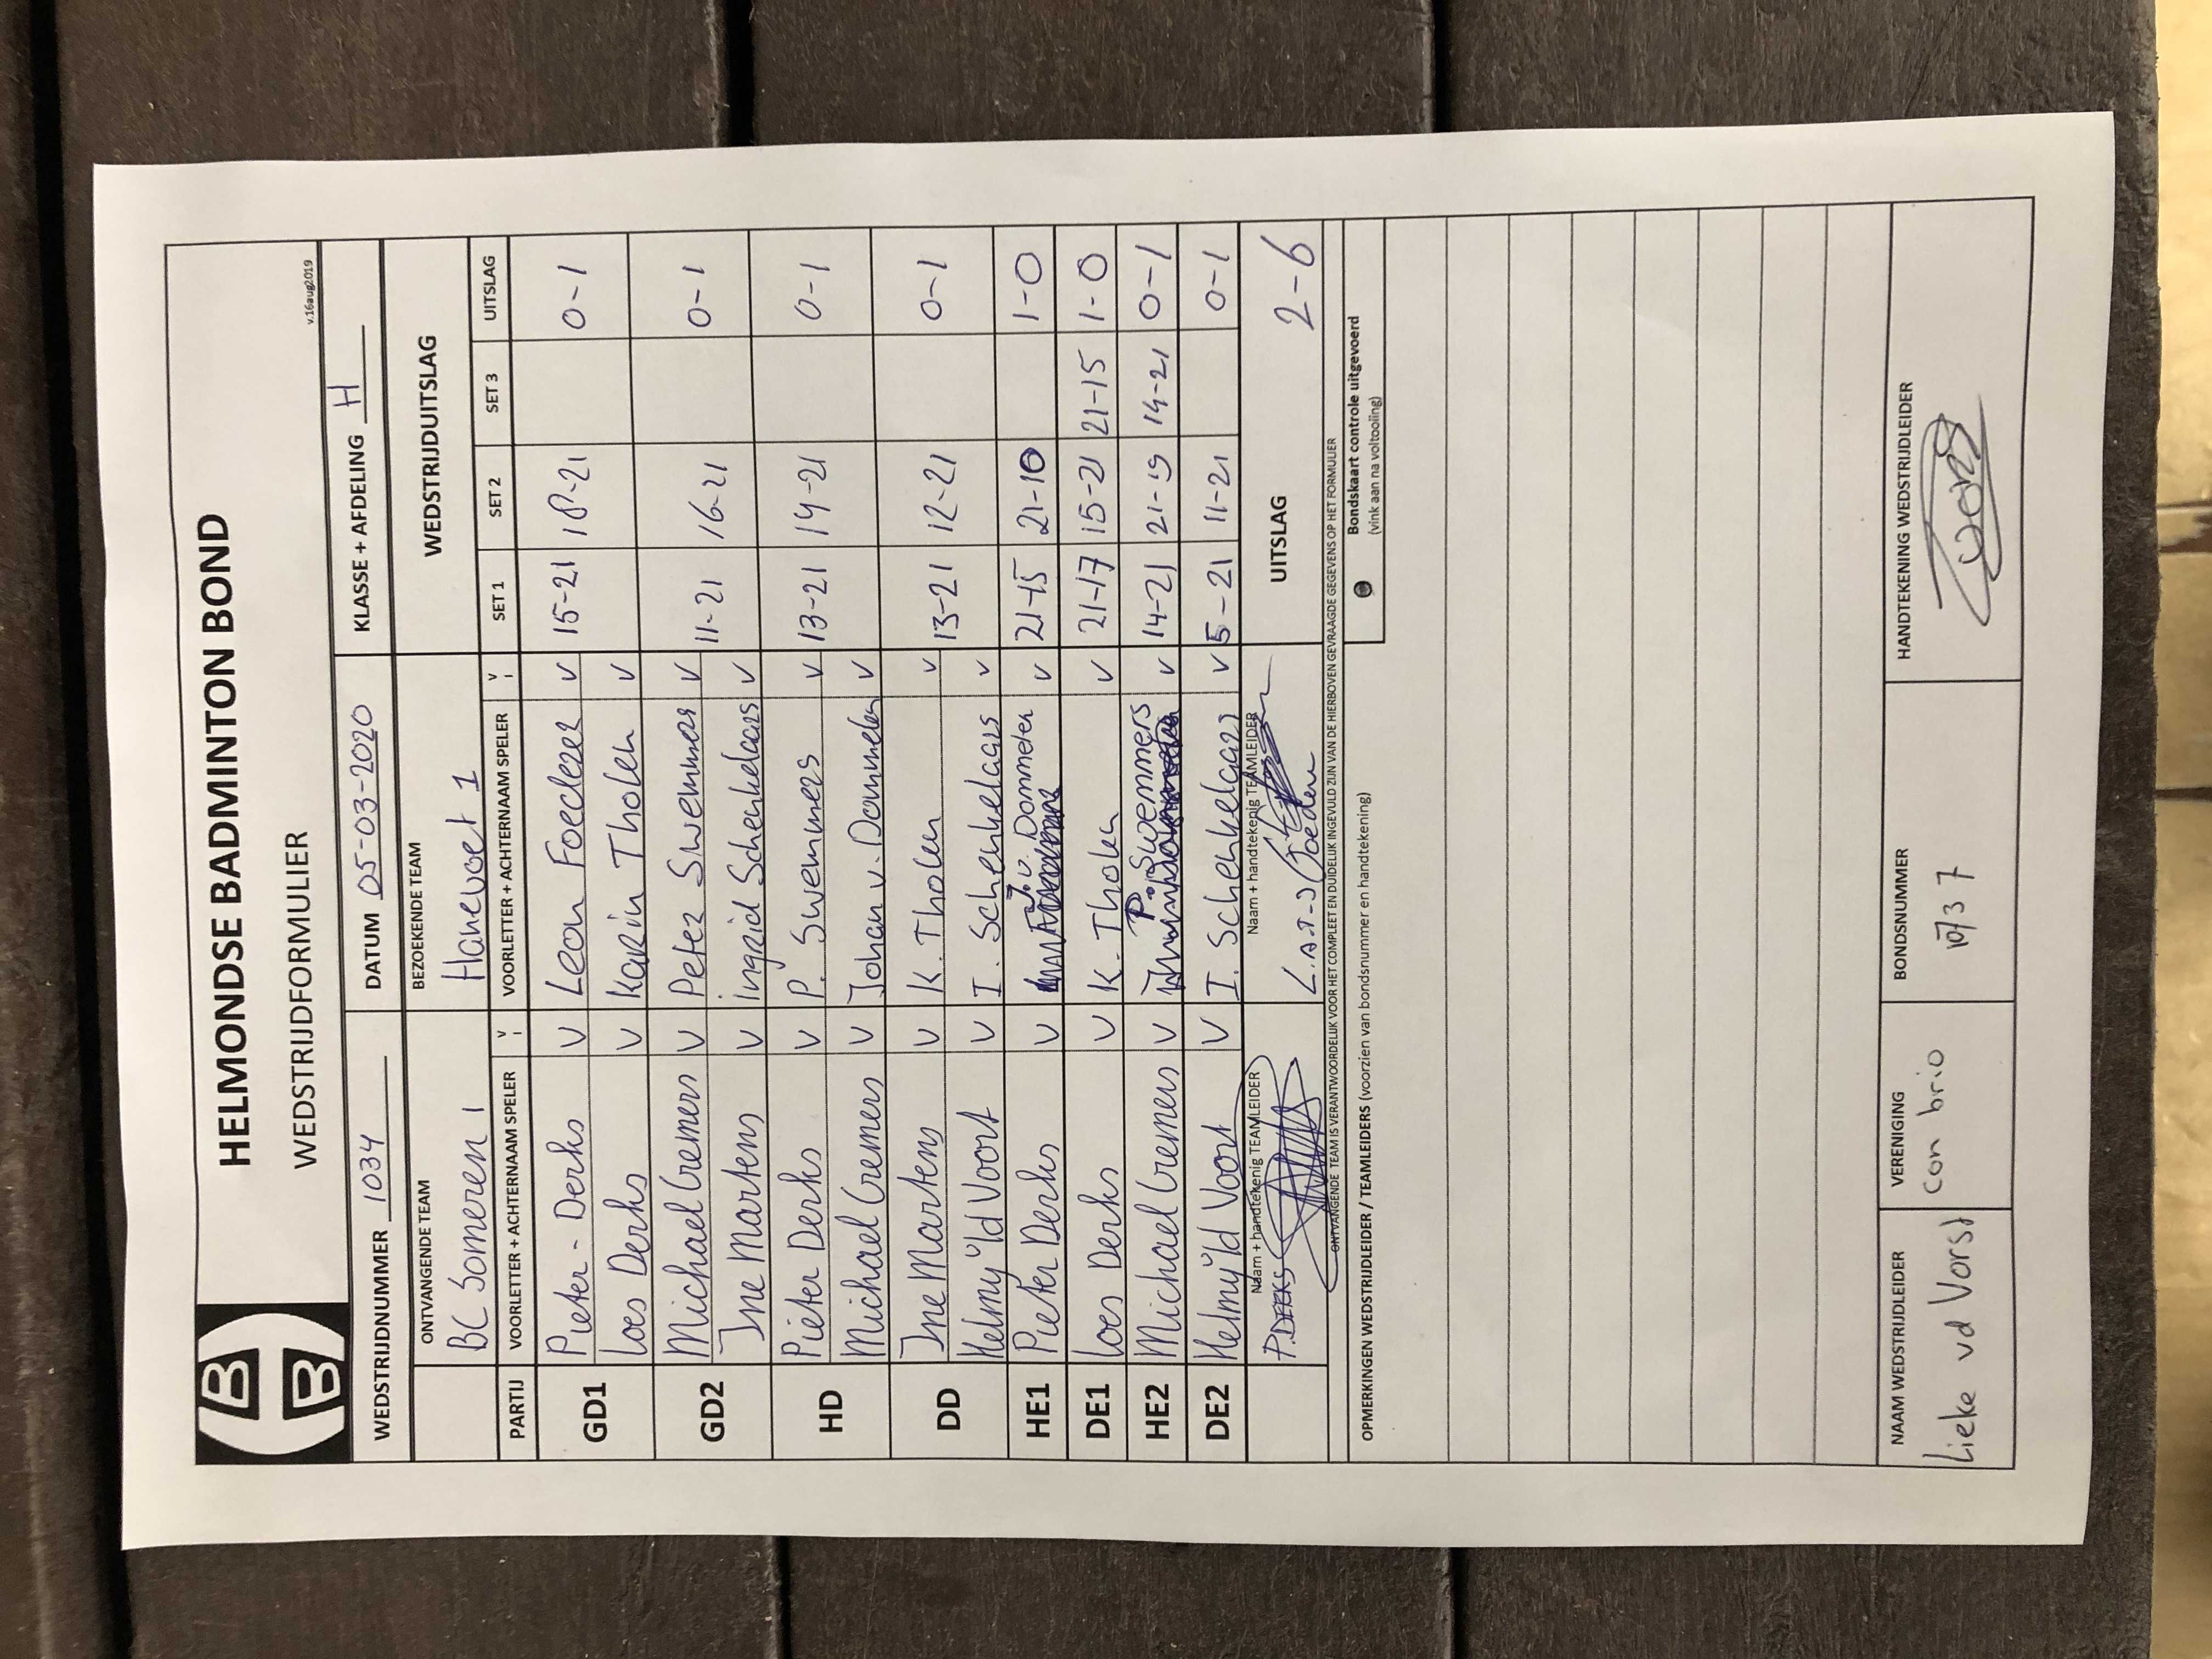 HB B
HELMONDSE BADMINTON BOND
WEDSTRIJDFORMULIER
v.16aug2019
WEDSTRIJDNUMMER 1034 DATUM 05-03-2020 KLASSE + AFDELING H
ONTVANGENDE TEAM BEZOEKENDE TEAM WEDSTRIJDUITSLAG
BC Someren 1 Hanevoet 1
PARTIJ VOORLETTER + ACHTERNAAM SPELER V VOORLETTER + ACHTERNAAM SPELER V SET 1 SET 2 SET 3 UITSLAG
GD1 Pieter - Derks V Leon Foederer V 15-21 18-21 0-1
Loes Derks V Karin Tholen V
GD2 Michael Cremers V Peter Swemmers V 11-21 16-21 0-1
Ine Martens V Ingrid Schenkelaars V
HD Pieter Derks V P. Swemmers V 13-21 14-21 0-1
Michael Cremers V Johan v. Dommelen V
DD Ine Martens V K. Tholen V 13-21 12-21 0-1
Helmy v/d Voort V I. Schenkelaars V
HE1 Pieter Derks V J. v. Dommelen V 21-15 21-10 1-0
DE1 Loes Derks V K. Tholen V 21-17 15-21 21-15 1-0
HE2 Michael Cremers V P. Swemmers V 14-21 21-19 14-21 0-1
DE2 Helmy v/d Voort V I. Schenkelaars V 5-21 11-21 0-1
Naam + handtekenig TEAMLEIDER Naam + handtekenig TEAMLEIDER UITSLAG 2-6
P. DERKS
ONTVANGENDE TEAM IS VERANTWOORDELIJK VOOR HET COMPLEET EN DUIDELIJK INGEVULD ZIJN VAN DE HIERBOVEN GEVRAAGDE GEGEVENS OP HET FORMULIER
OPMERKINGEN WEDSTRIJDLEIDER / TEAMLEIDERS (voorzien van bondsnummer en handtekening) Bondskaart controle uitgevoerd
(vink aan na voltooiing)
NAAM WEDSTRIJDLEIDER VERENIGING BONDSNUMMER HANDTEKENING WEDSTRIJDLEIDER
Lieke vd Vorst con brio